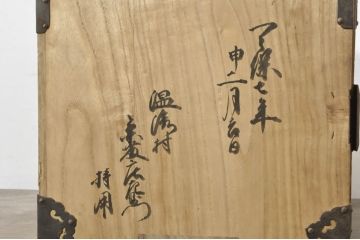 天保七年
申二月吉日
温海村
衛門
持用